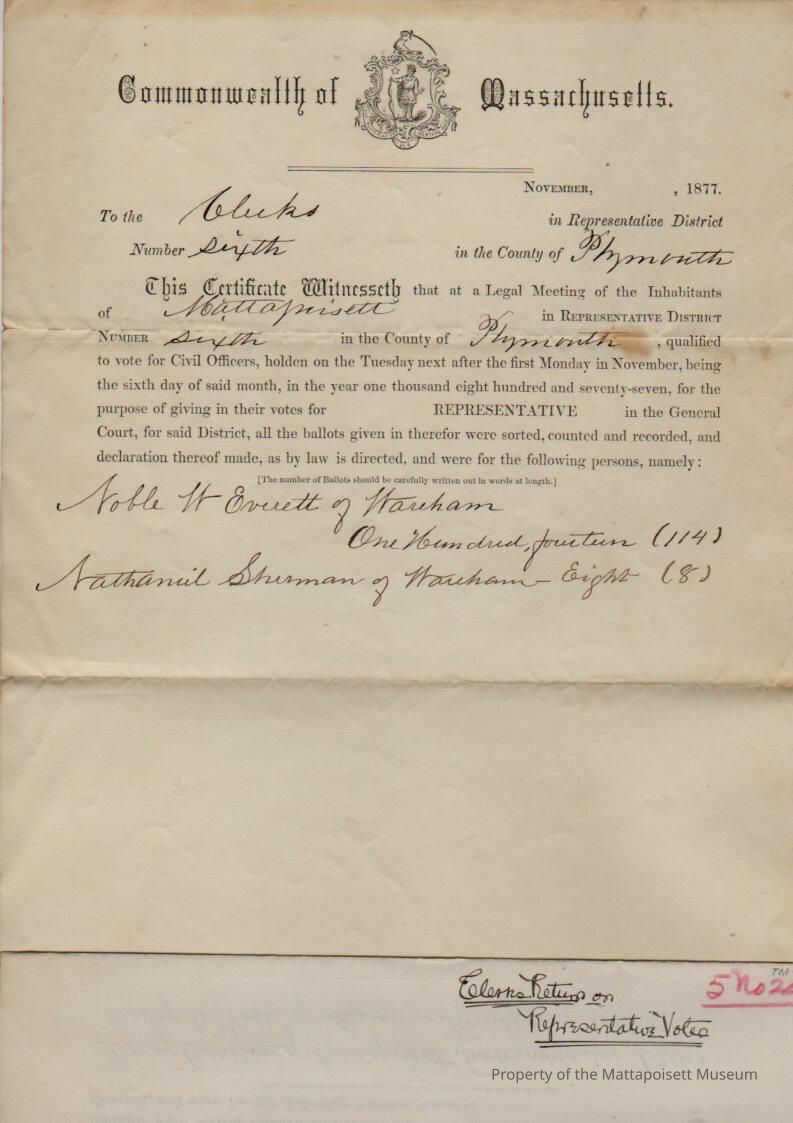 Commonwealth of Massachusetts.
November, , 1877.
To the Clerks
in Representative District
Number sixth in the County of Plymouth
This Certificate Witnesseth that at a Legal Meeting of the Inhabitants
of Mattapoisett in Representative District
Number sixth in the County of Plymouth , qualified
to vote for Civil Officers, holden on the Tuesday next after the first Monday in November, being
the sixth day of said month, in the year one thousand eight hundred and seventy-seven, for the
purpose of giving in their votes for REPRESENTATIVE in the General
Court, for said District, all the ballots given in therefor were sorted, counted and recorded, and
declaration thereof made, as by law is directed, and were for the following persons, namely:
[The number of Ballots should be carefully written out in words at length.]
Noble W Everett of Wareham
One Hundred, fourteen (114)
Nathaniel Sherman of Wareham – Eight (8)
TM
Clerks Return on
5 No
Representative Votes
Property of the Mattapoisett Museum
directed, and were for the following persons, namely: